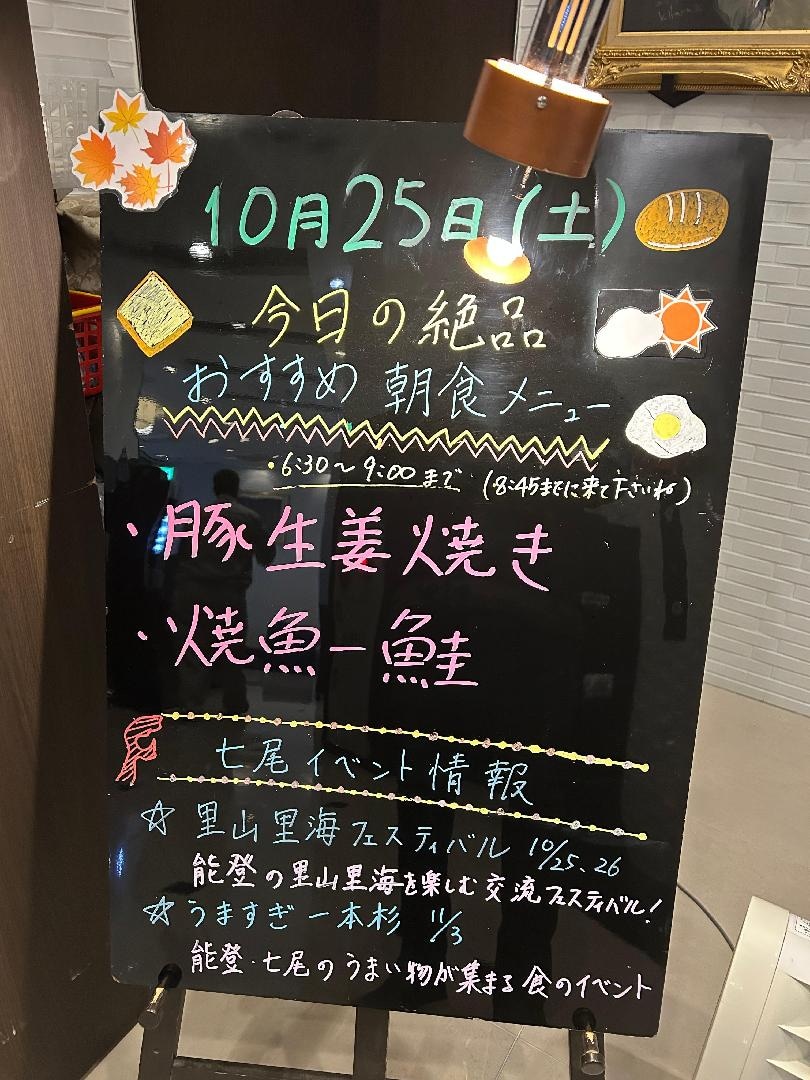 10月25日(土)
今日の絶品
おすすめ 朝食メニュー
・6:30～9:00まで (8:45までに来て下さいね)
・豚生姜焼き
・焼魚ー鮭
七尾イベント情報
☆里山里海フェスティバル 10/25、26
能登の里山里海を楽しむ交流フェスティバル!
☆うますぎ一本杉 11/3
能登・七尾のうまい物が集まる食のイベント